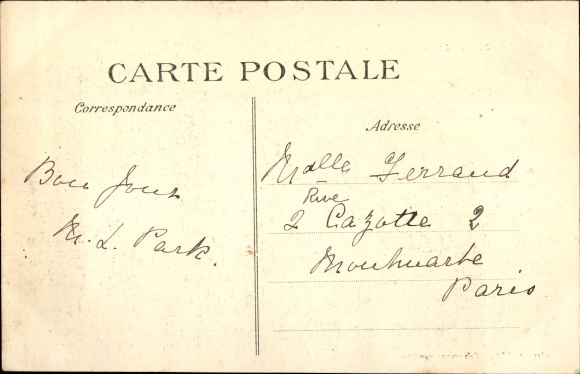 CARTE POSTALE
Correspondance
Adresse
Bon Jour
M. L. Park.
Melle Ferrand
Rue
2 Cazotte 2
Paris